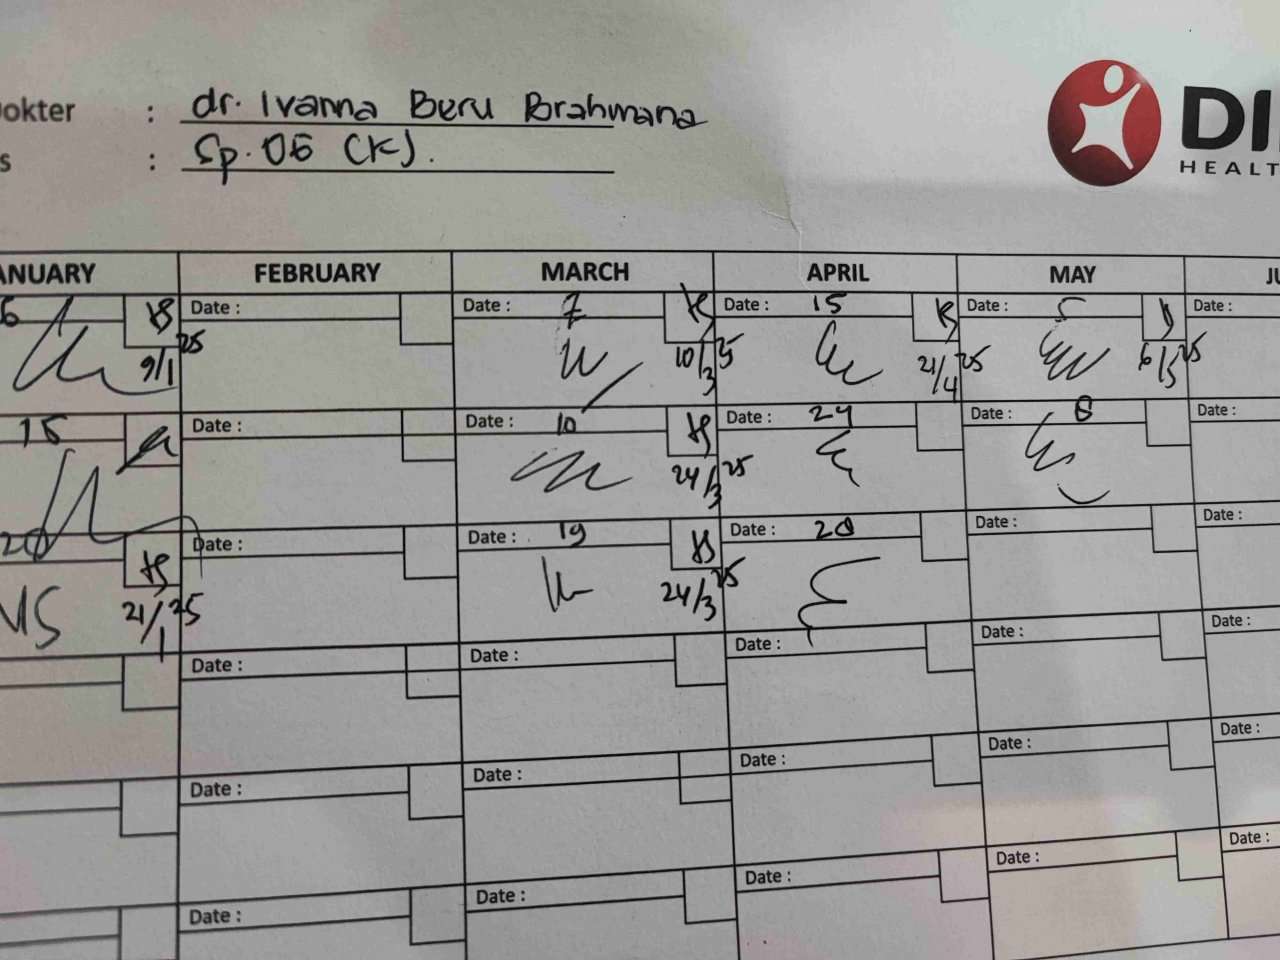 Dokter : dr. Ivanna Beru Brahmana
s : Sp. OG (K).
DI
HEALT
ANUARY FEBRUARY MARCH APRIL MAY JU
6 Date : Date : 7 Date : 15 Date : 5 Date :
9/1 25 10/3 25 21/4 25 6/5 25
15 Date : Date : 10 Date : 24 Date : 8 Date :
24/3 25
20 Date : Date : 19 Date : 28 Date : Date :
21/1 25 24/3 25
Date : Date : Date : Date : Date :
Date : Date : Date : Date : Date :
Date : Date : Date : Date : Date :